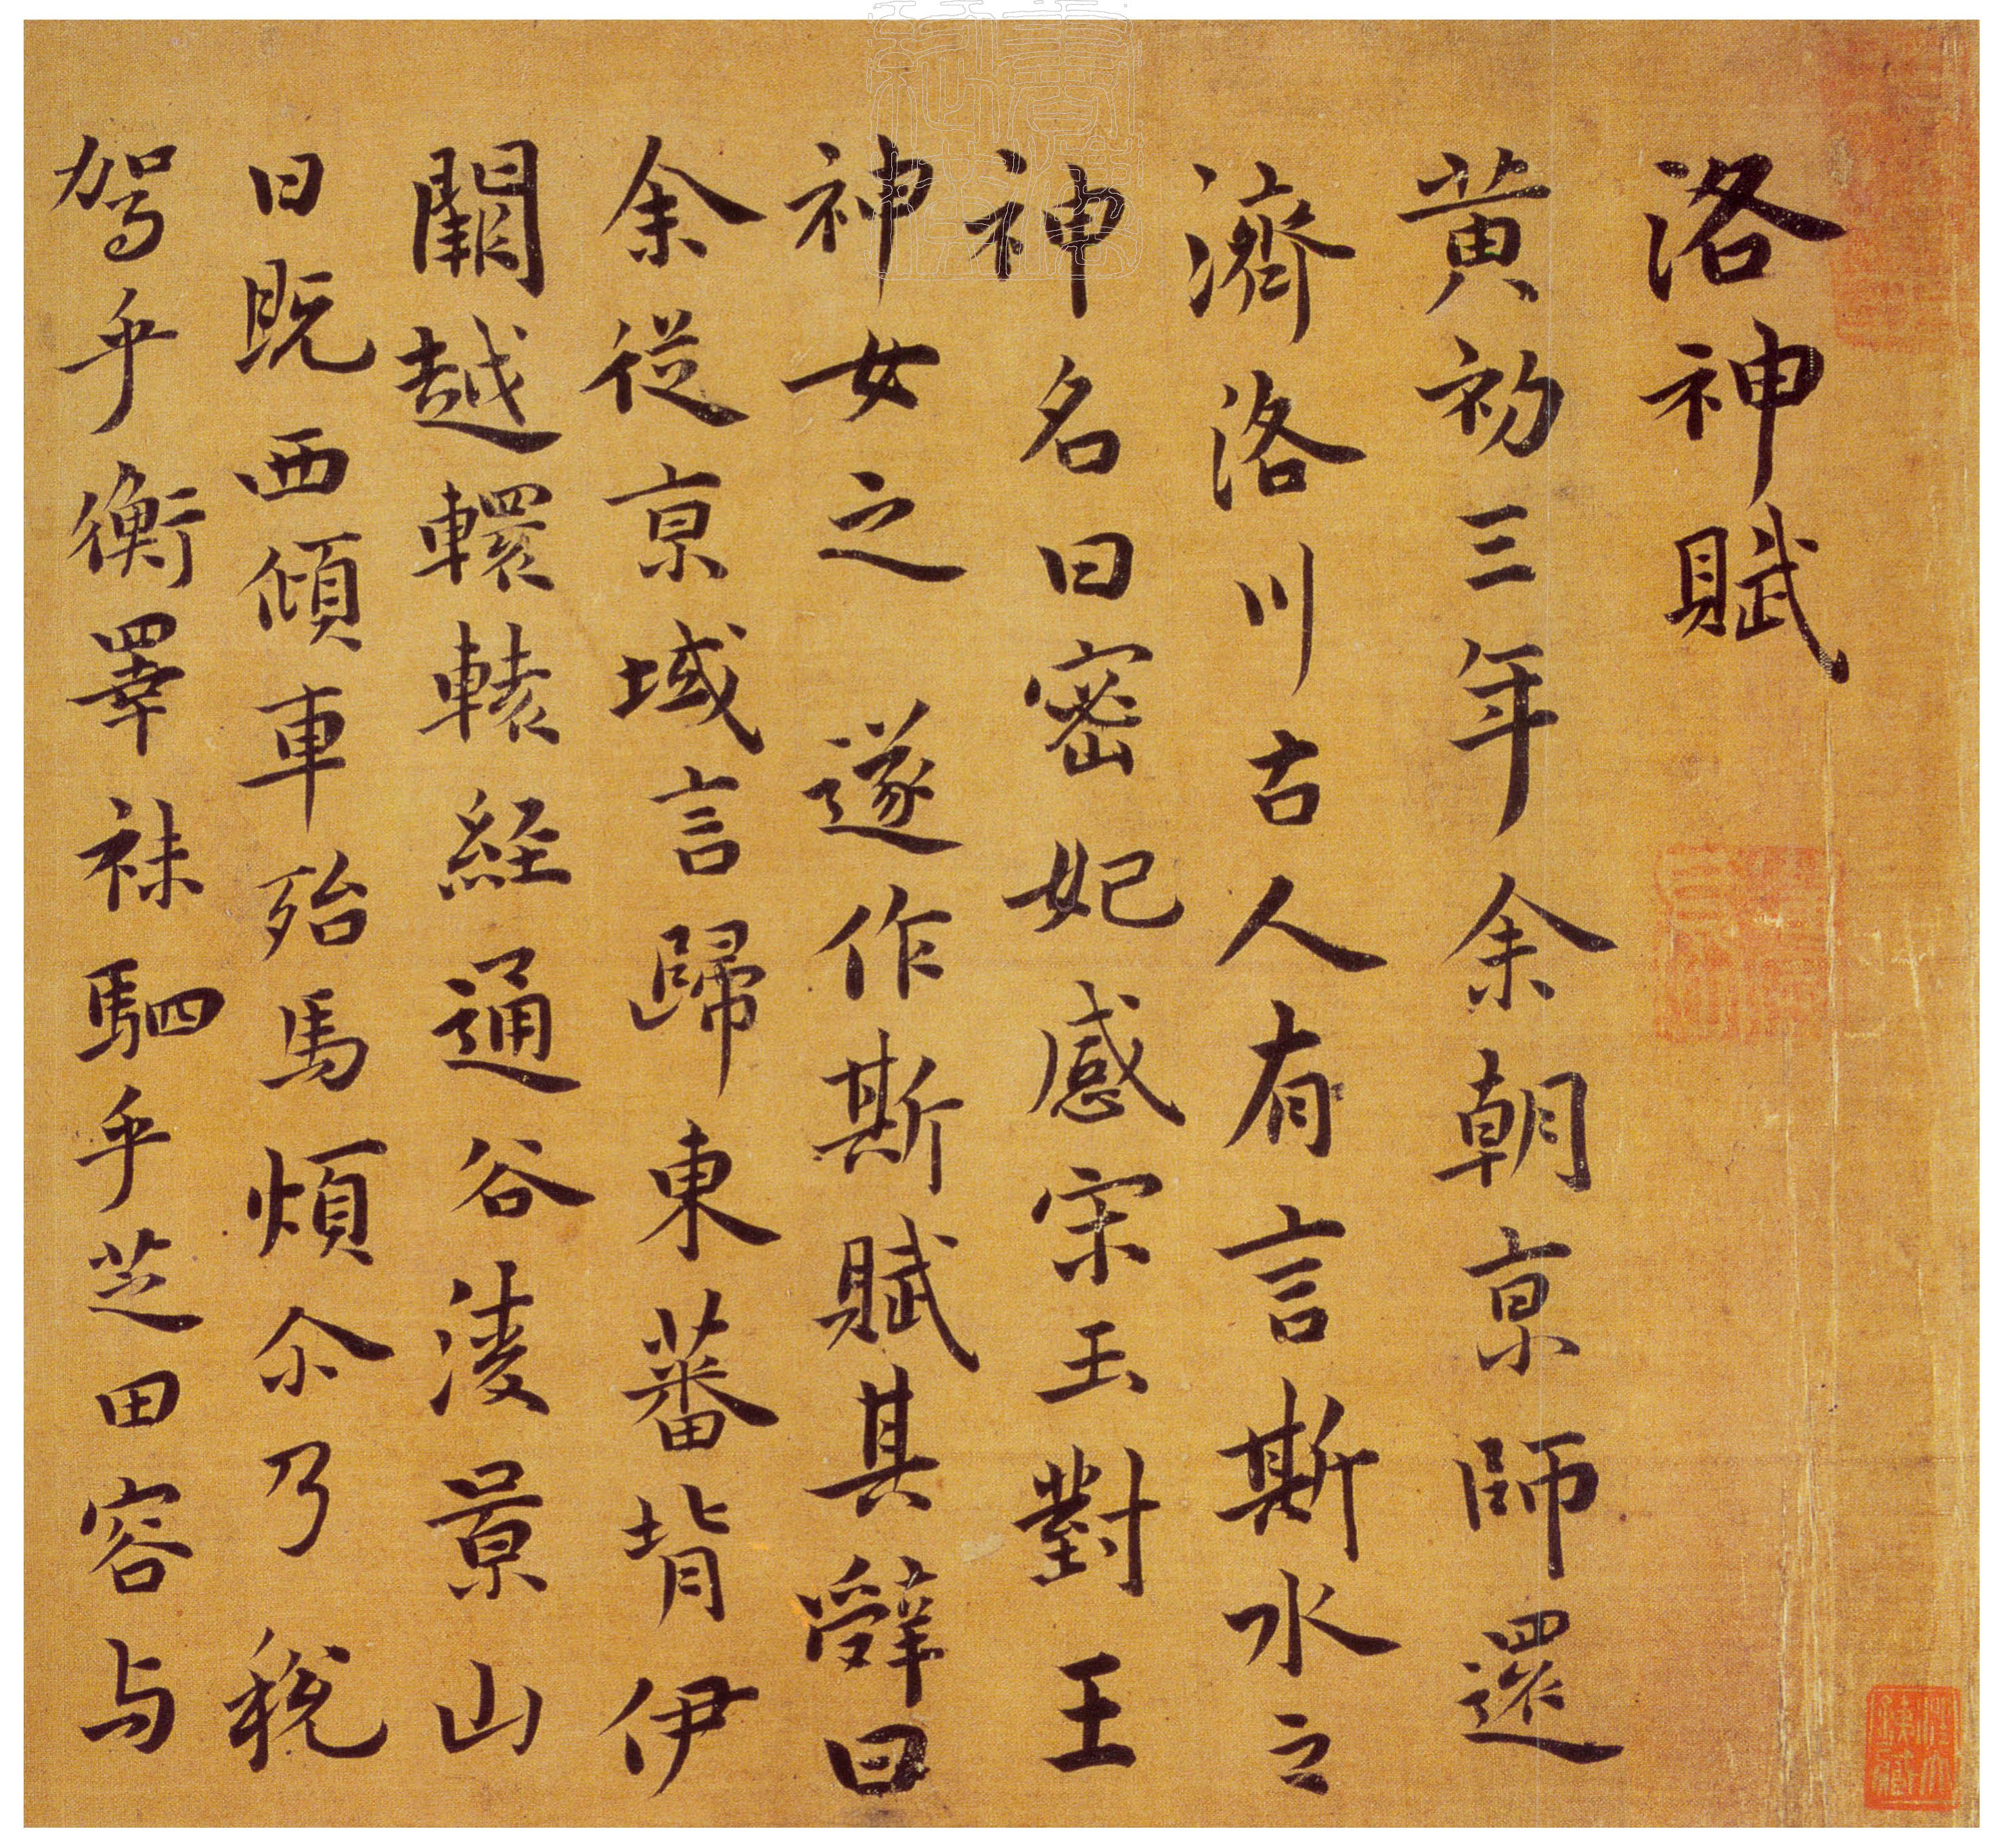 洛神賦
黄初三年余朝京師還
濟洛川古人有言斯水之
神名曰密妃感宋玉對王
神女之遂作斯賦其辭曰
余從京域言歸東蕃背伊
闕越轘轅経通谷淩景山
日既西傾車殆馬煩尒乃税
駕乎衡睪袜駟乎芝田容与